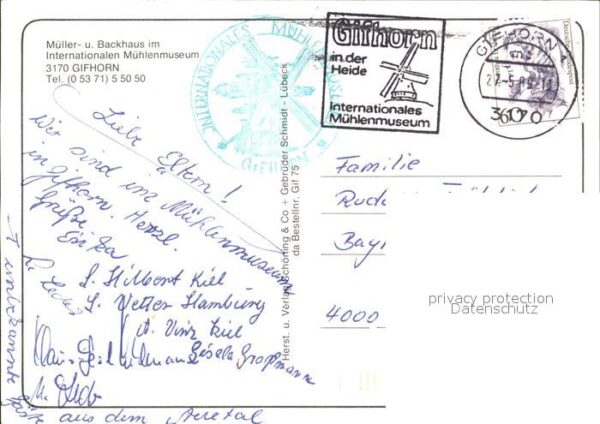 Müller- u. Backhaus im
Internationalen Mühlenmuseum
3170 GIFHORN
Tel. (0 53 71) 5 50 50
INTERNATIONALES MÜHLENMUSEUM
GIFHORN
Gifhorn
in der
Heide
Internationales
Mühlenmuseum
GIFHORN
3170
Deutsche Bundespost
Liebe Eltern!
Wir sind im Mühlenmuseum
in Gifhorn. Herzl.
Grüße
Erika
S. Hilbert Kiel
S. Vetter Hamburg
Kiel
Gisela Großmann
unbekannte Gäste aus dem
Herst. u. Verlag Schöning & Co + Gebrüder Schmidt - Lübeck
da Bestellnr. Gif 75
Familie
4000
privacy protection
Datenschutz